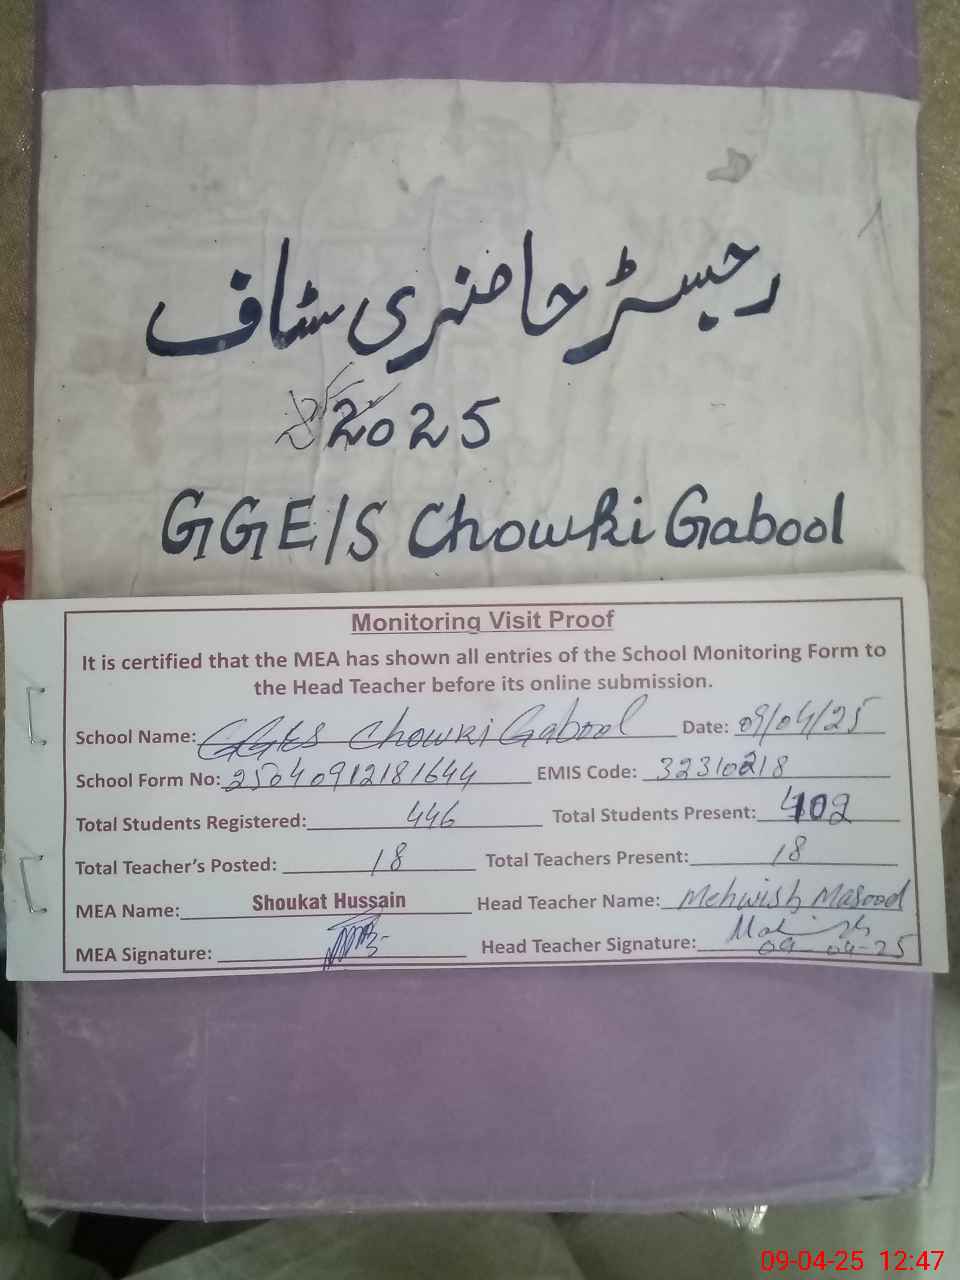 رجسٹر حاضری سٹاف
2025
GGE/S Chowki Gabool
Monitoring Visit Proof
It is certified that the MEA has shown all entries of the School Monitoring Form to
the Head Teacher before its online submission.
School Name: GGES Chowki Gabool Date: 09/04/25
School Form No: 25040912181644 EMIS Code: 32310218
Total Students Registered: 446 Total Students Present: 402
Total Teacher's Posted: 18 Total Teachers Present: 18
MEA Name: Shoukat Hussain Head Teacher Name: Mehwish Masood
MEA Signature: Head Teacher Signature:
09-04-25
09-04-25 12:47